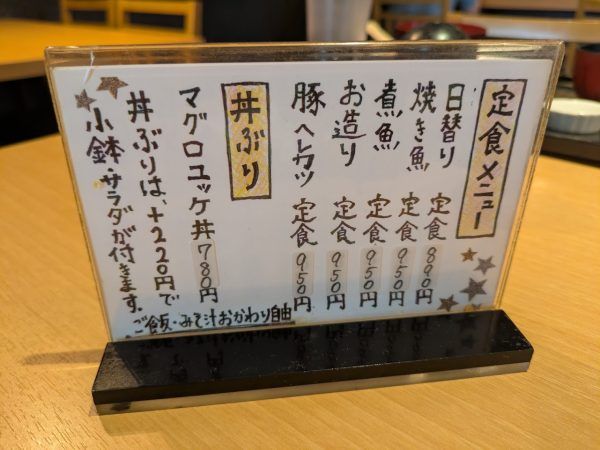 定食メニュー
日替り定食 890円
焼き魚定食 950円
煮魚定食 950円
お造り定食 950円
豚ヘレカツ定食 950円
丼ぶり
マグロユッケ丼 780円
丼ぶりは、+220円で
小鉢・サラダが付きます。
ご飯・みそ汁おかわり自由